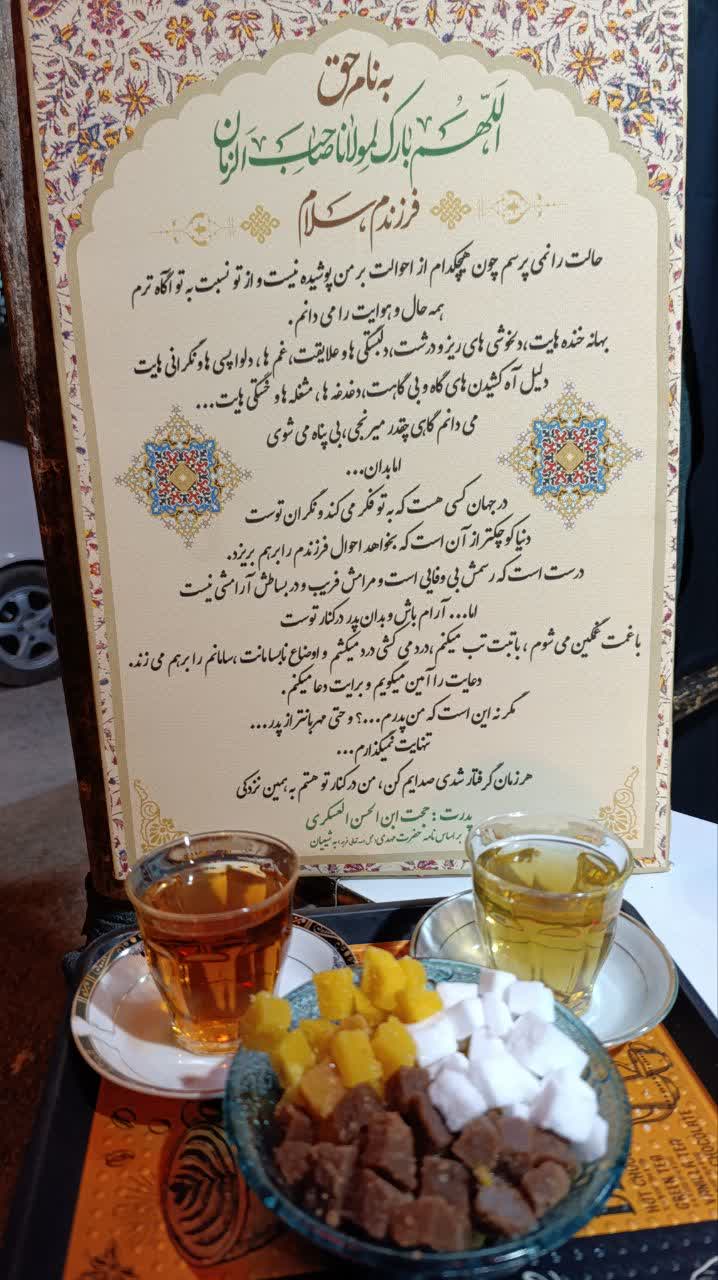 به نام حق
اللّهم بارک لمولانا صاحب الزمان
فرزندم سلام
حالت را نمی پرسم چون هیچکدام از احوالت بر من پوشیده نیست و از تو نسبت به تو آگاه ترم
همه حال و هوایت را می دانم.
بهانه خنده هایت، دلخوشی های ریز و درشت، دلبستگی ها و علایقت، غم ها، دلواپسی ها و نگرانی هایت
دلیل آه کشیدن های گاه و بی گاهت، دغدغه ها، مشغله ها و خستگی هایت...
می دانم گاهی چقدر میرنجی، بی پناه می شوی
اما بدان...
در جهان کسی هست که به تو فکر می کند و نگران توست
دنیا کوچکتر از آن است که بخواهد احوال فرزندم را برهم بریزد.
درست است که رسمش بی وفایی است و مرامش فریب و در بساطش آرامشی نیست
اما... آرام باش و بدان پدر درکنار توست
با غمت غمگین می شوم، با تبت تب میکنم، درد می کشی درد میکشم و اوضاع نابسامانت، سامانم را برهم می زند.
دعایت را آمین میگویم و برایت دعا میکنم.
مگر نه این است که من پدرم...؟ و حتی مهربانتر از پدر...
تنهایت نمیگذارم...
هر زمان گرفتار شدی صدایم کن، من در کنار تو هستم به همین نزدکی
پدرت: حجت ابن الحسن العسکری
بر اساس نامه حضرت مهدی (عجل الله تعالی فرجه) به شیعیان
HOT CHOCOLATE
GREEN TEA